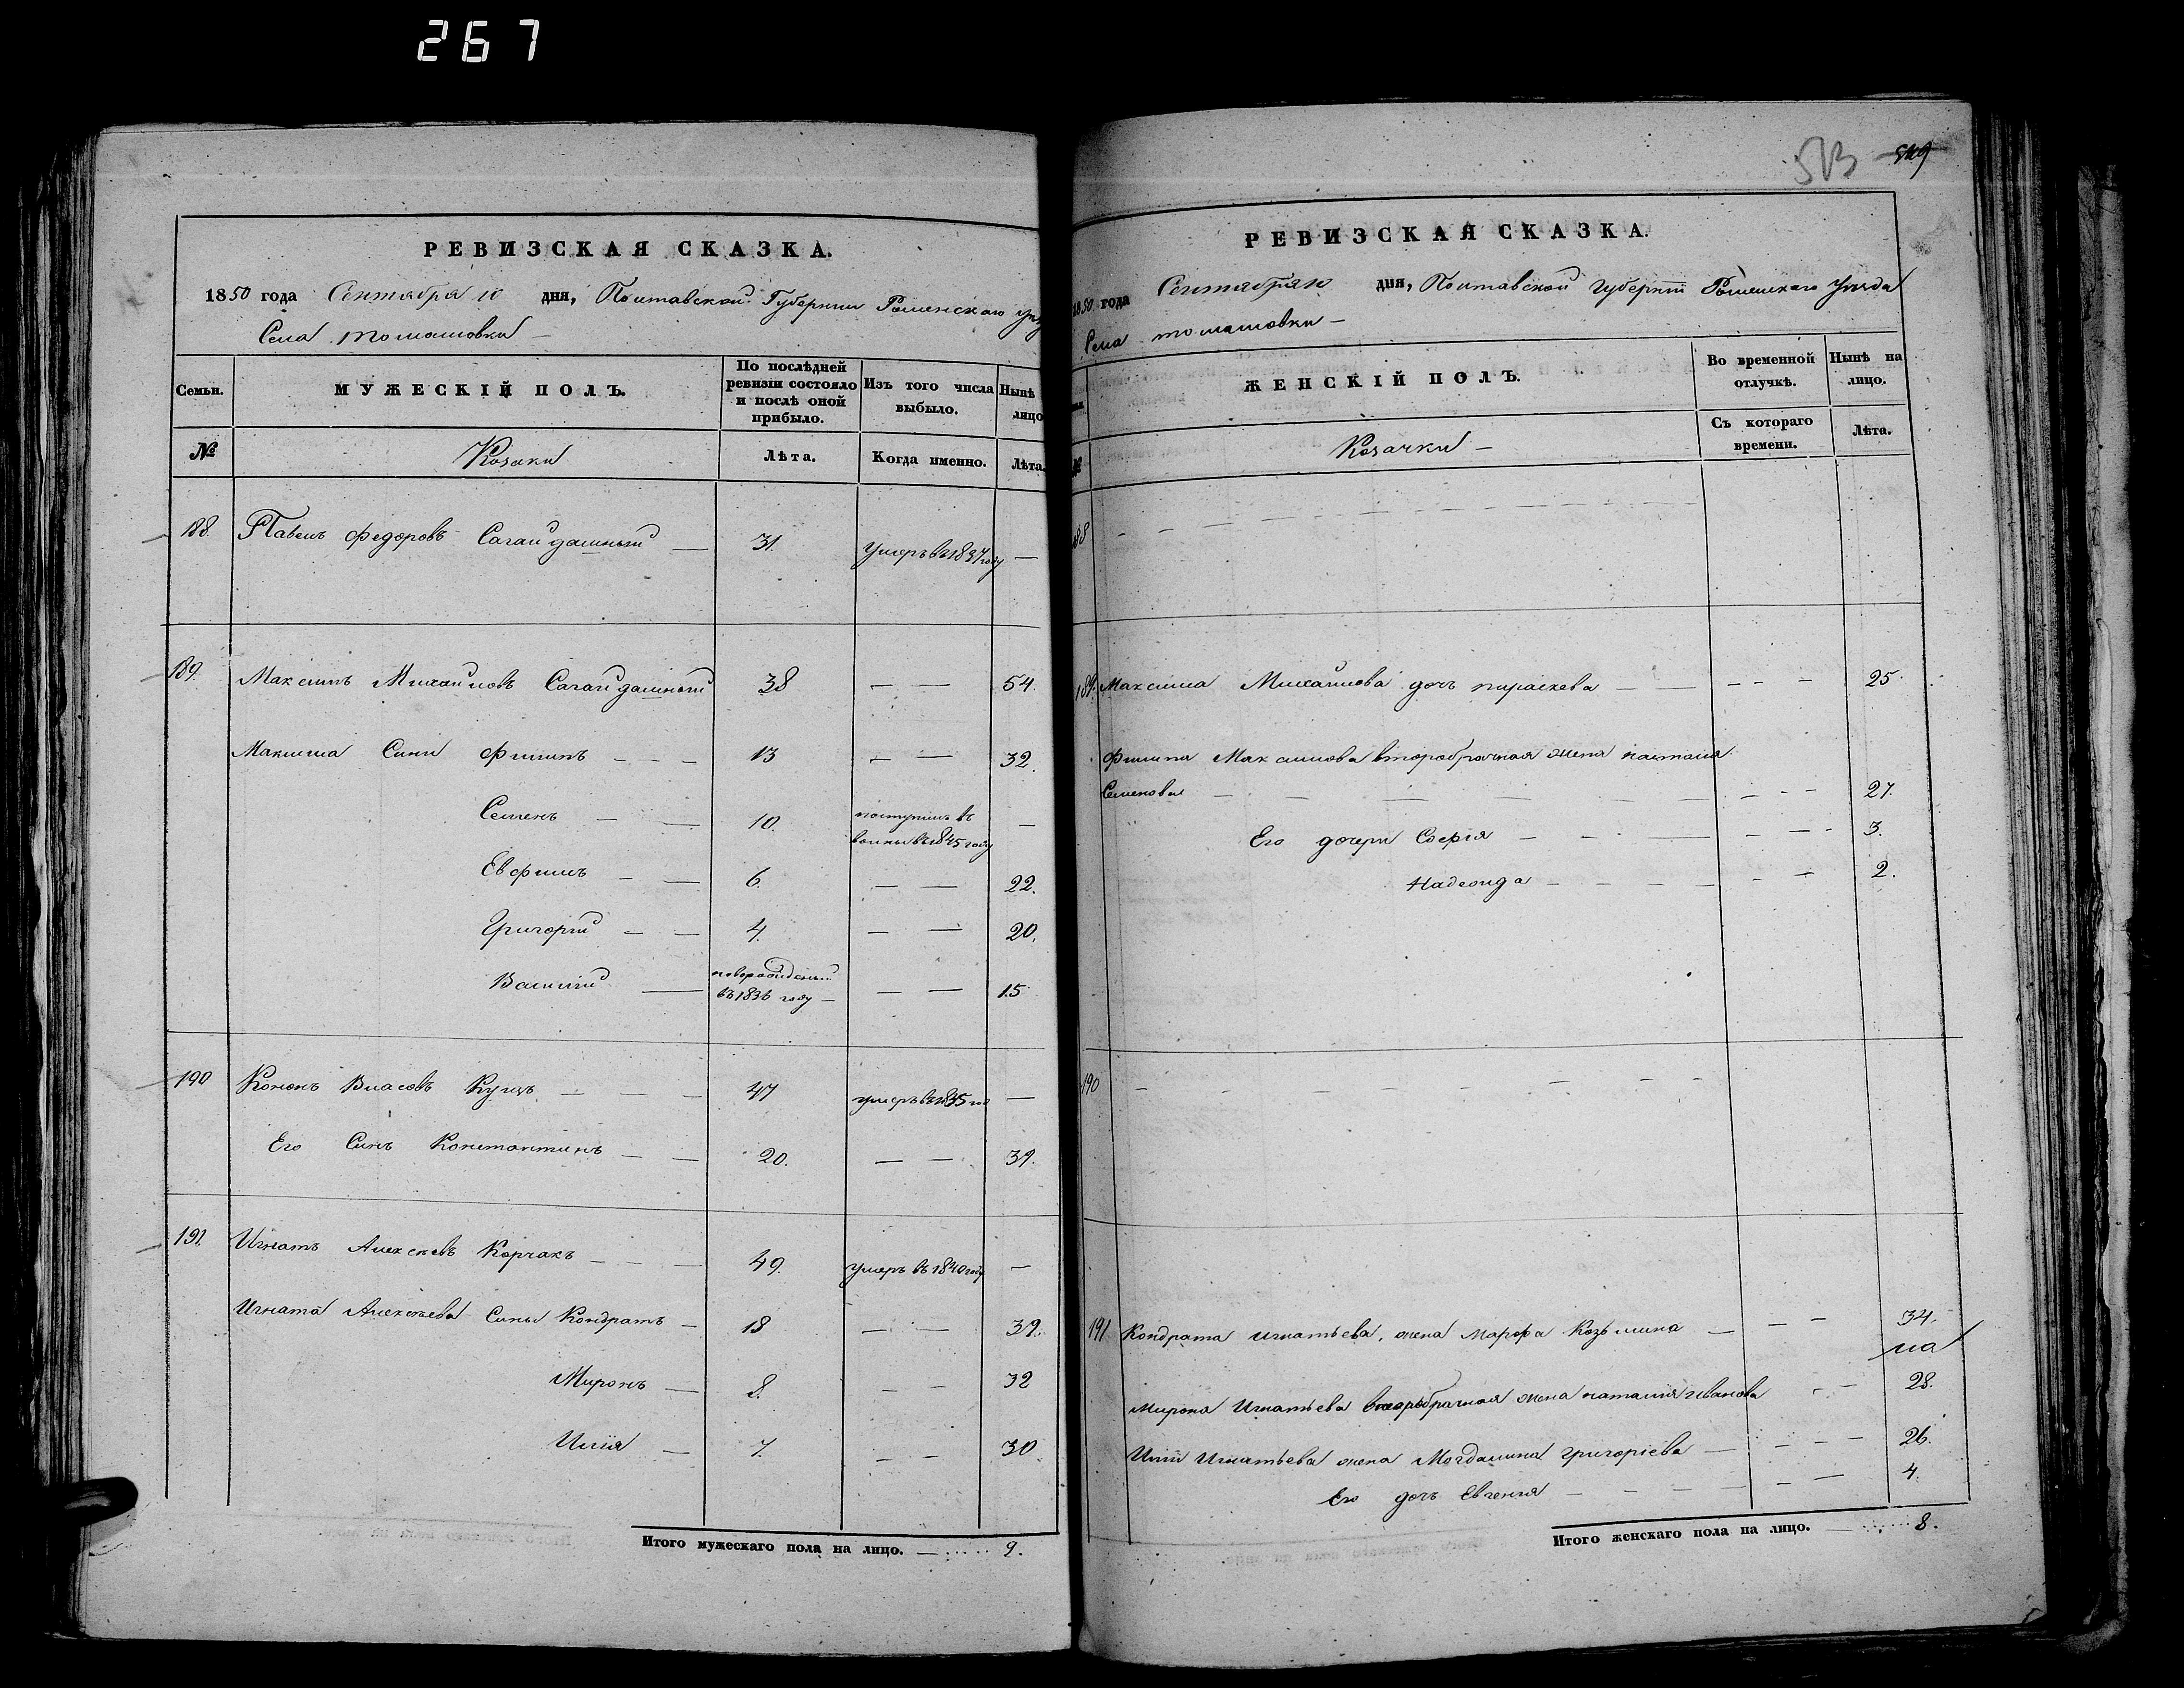 267
РЕВИЗСКАЯ СКАЗКА.
1850 года Сентября 10 дня, Полтавской Губернии Роменского уез
Села Томашовки —
Семьи. МУЖЕСКІЙ ПОЛЪ. По послѣдней ревизіи состояло и послѣ оной прибыло. Изъ того числа выбыло. Нынѣ лицо
№ Козаки Лѣта. Когда именно. Лѣта.
188. Павелъ Федоровъ Сагайдашный — 31. умеръ въ 1837 году —
189. Максимъ Михайловъ Сагайдашный 38 — — 54.
Максима Сини Филипъ — — — 13 — — 32.
Семенъ — — 10. поступилъ въ —
воины въ 1845 году
Евфимъ — — 6. — — 22.
Григорий — — 4. — — 20.
Василий — новорожденый — — 15
въ 1836 году —
190 Кононъ Власовъ Куцъ — — — 47 умеръ въ 1835 го —
Его Синъ Константинъ — — 20. — — 39.
191. Игнатъ Алексѣевъ Корчакъ — — — 49. умеръ въ 1840 году —
Игната Алексѣева Сины Кондратъ — 18 — — 39.
Миронъ — 8. — — 32
Илія — 7. — — 30
Итого мужескаго пола на лицо. — 9.
513 519
РЕВИЗСКАЯ СКАЗКА.
1850 года Сентября 10 дня, Полтавской Губерніи Роменского Уезда
Села Томашовки —
ЖЕНСКІЙ ПОЛЪ. Во временной отлучкѣ. Нынѣ на лицо.
№ Козачки — Съ котораго времени. Лѣта.
188 — — — — — —
189. Максима Михайлова дочъ параскева — — — — — 25
Филипа Максимова второбрачная жена наталія
Семенова — — — — — — — — 27.
Его дочери Софія — — — — — — 3.
Надежда — — — — — — 2.
190 — — — — — — —
191 Кондрата Игнатьева, жена Марфа Козьмина — — — 34.
Мирона Игнатьева второбрачная жена наталия иванова — — 28.
Иліи Игнатьева жена Магдалина григоріева — — — — 26.
Его дочъ Евгенія — — — — — — 4.
Итого женскаго пола на лицо. — 8.